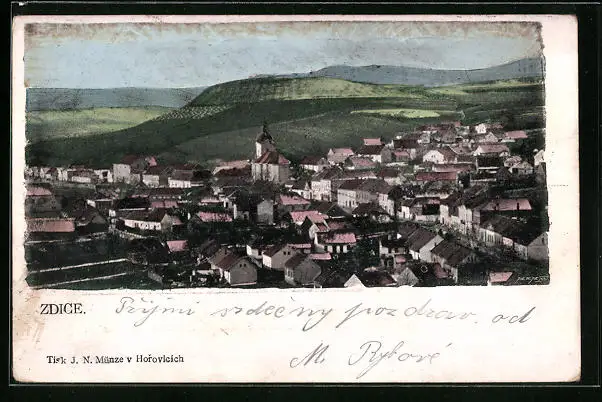 ZDICE.
Přijmi srdečný pozdrav od
M. Rybové
Tisk J. N. Münze v Hořovicích